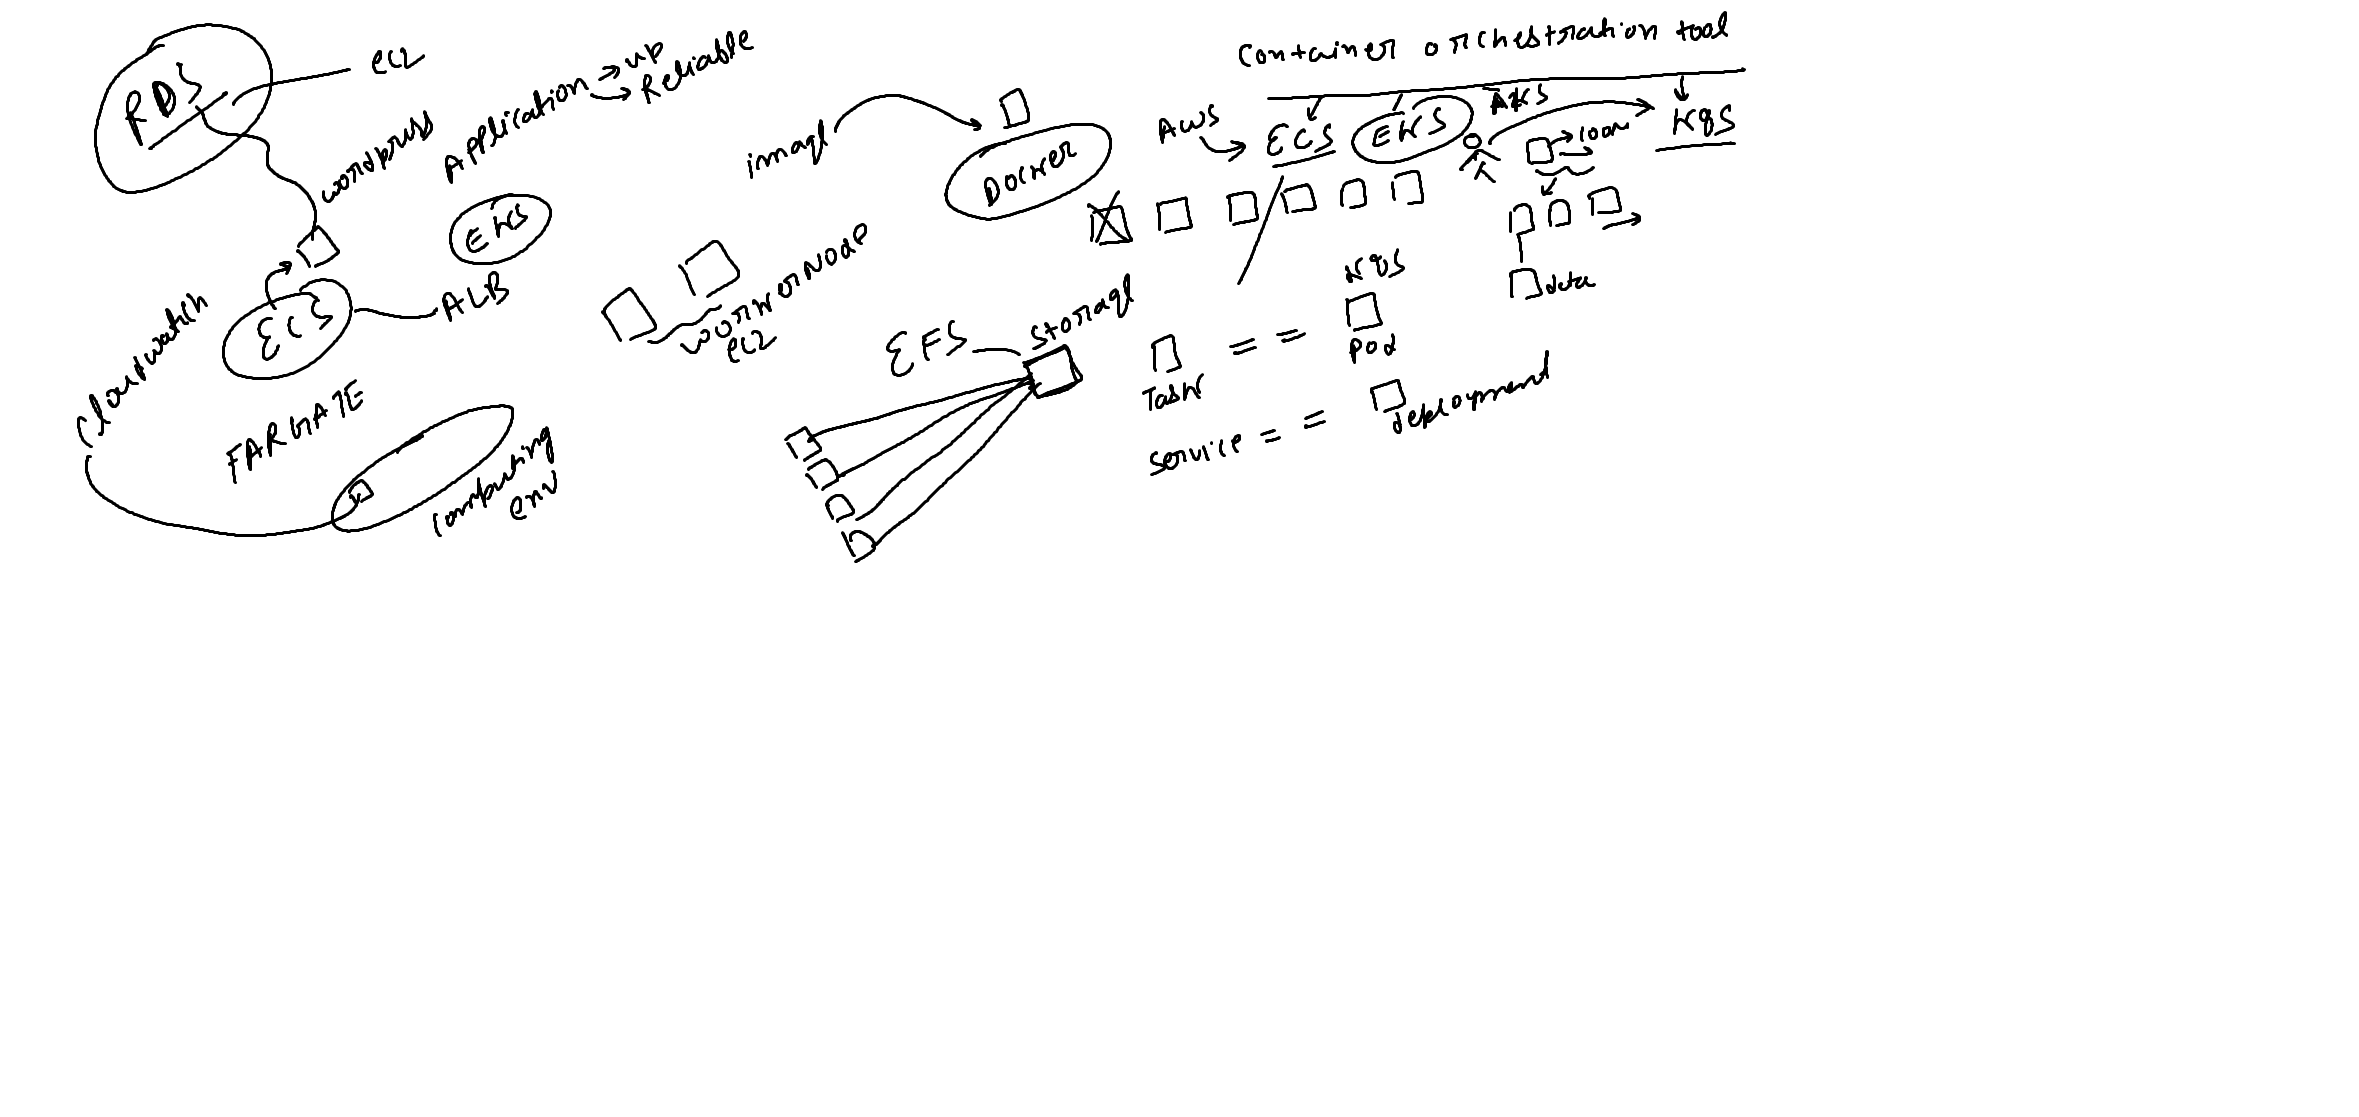 RDS
ec2
wordpress
Application → up
→ Reliable
EKS
ECS
ALB
cloudwatch
FARGATE
computing
env
image
Docker
worker Node
ec2
EFS
storage
Container orchestration tool
AWS
ECS
EKS
AKS
K8S
data
K8S
Task
==
Pod
service == deployment